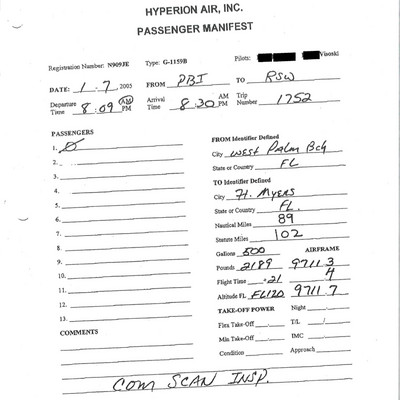 HYPERION AIR, INC.
PASSENGER MANIFEST
Registration Number: N909JE Type: G-1159B Pilots: Visoski
DATE: 1.7 2005 FROM PBI TO RSW
Departure Time 8:09 AM PM Arrival Time 8:30 AM PM Trip Number 1752
PASSENGERS
1. Ø
2.
3.
4.
5.
6.
7.
8.
9.
10.
11.
12.
13.
COMMENTS
FROM Identifier Defined
City West Palm Bch
State or Country FL
TO Identifier Defined
City Ft. Myers
State or Country FL.
Nautical Miles 89
Statute Miles 102
Gallons 500 AIRFRAME
Pounds 2189 9711 3
Flight Time .21 4
Altitude FL FL120 9711 7
TAKE-OFF POWER Night
Flex Take-Off T/L /
Min Take-Off IMC
Condition Approach
COM SCAN INSP.